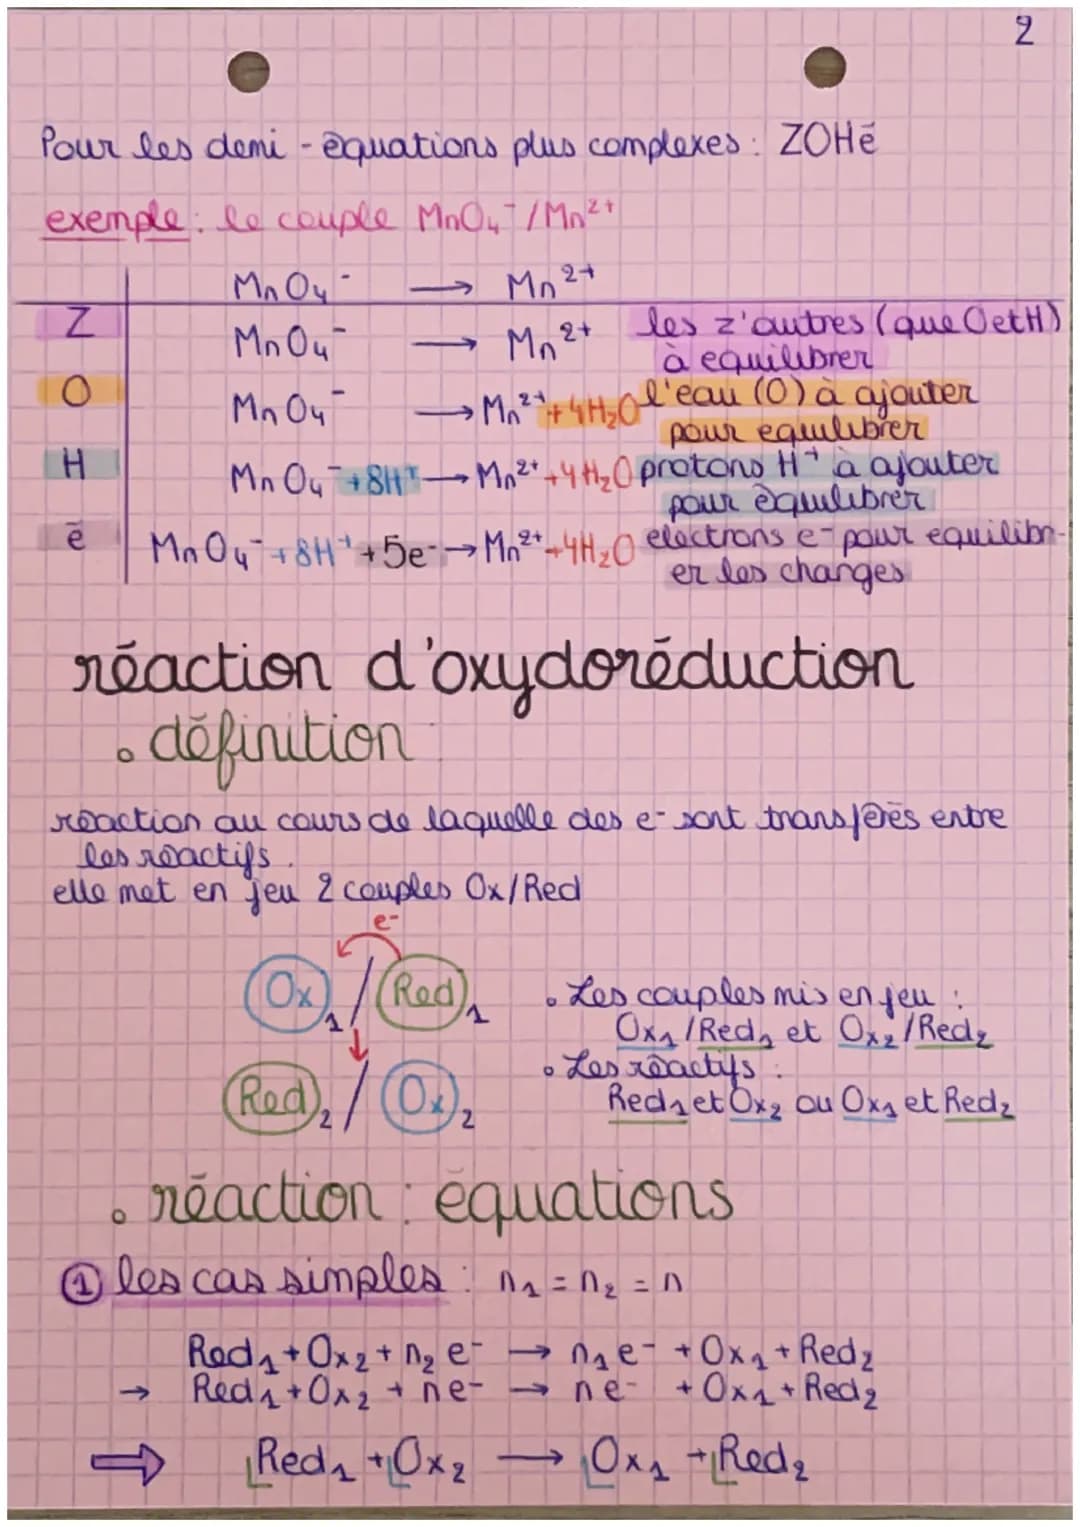 2
Pour les demi-équations plus complexes : ZOHē
exemple : le couple MnO₄⁻/Mn²⁺
MnO₄⁻ → Mn²⁺
Z MnO₄⁻ → Mn²⁺ les z'autres (que O et H)
à equilibrer
O MnO₄⁻ → Mn²⁺ + 4H₂O l'eau (O) à ajouter
pour equilibrer
H MnO₄⁻ + 8H⁺ → Mn²⁺ + 4H₂O protons H⁺ à ajouter
pour équilibrer
ē MnO₄⁻ + 8H⁺ + 5e⁻ → Mn²⁺ + 4H₂O electrons e⁻ pour equilibr-
er les changes
réaction d'oxydoréduction
• définition :
réaction au cours de laquelle des e⁻ sont transférés entre
les réactifs.
elle met en jeu 2 couples Ox/Red
e⁻
Ox₁ / Red₁
Red₂ / Ox₂
• Les couples mis en jeu :
Ox₁/Red₁ et Ox₂/Red₂
• Les réactifs :
Red₁ et Ox₂ ou Ox₁ et Red₂
• réaction : équations
① les cas simples : n₁ = n₂ = n
Red₁ + Ox₂ + n₂e⁻ → n₁e⁻ + Ox₁ + Red₂
→ Red₁ + Ox₂ + ne⁻ → ne⁻ + Ox₁ + Red₂
⇒ Red₁ + Ox₂ → Ox₁ + Red₂